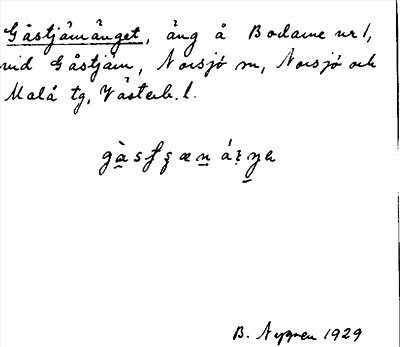 Gåstjärnänget, äng å Bodarne nr 1,
vid Gåstjärn, Norsjö sn, Norsjö och
Malå tg, Västerb. l.
B. Nygren 1929